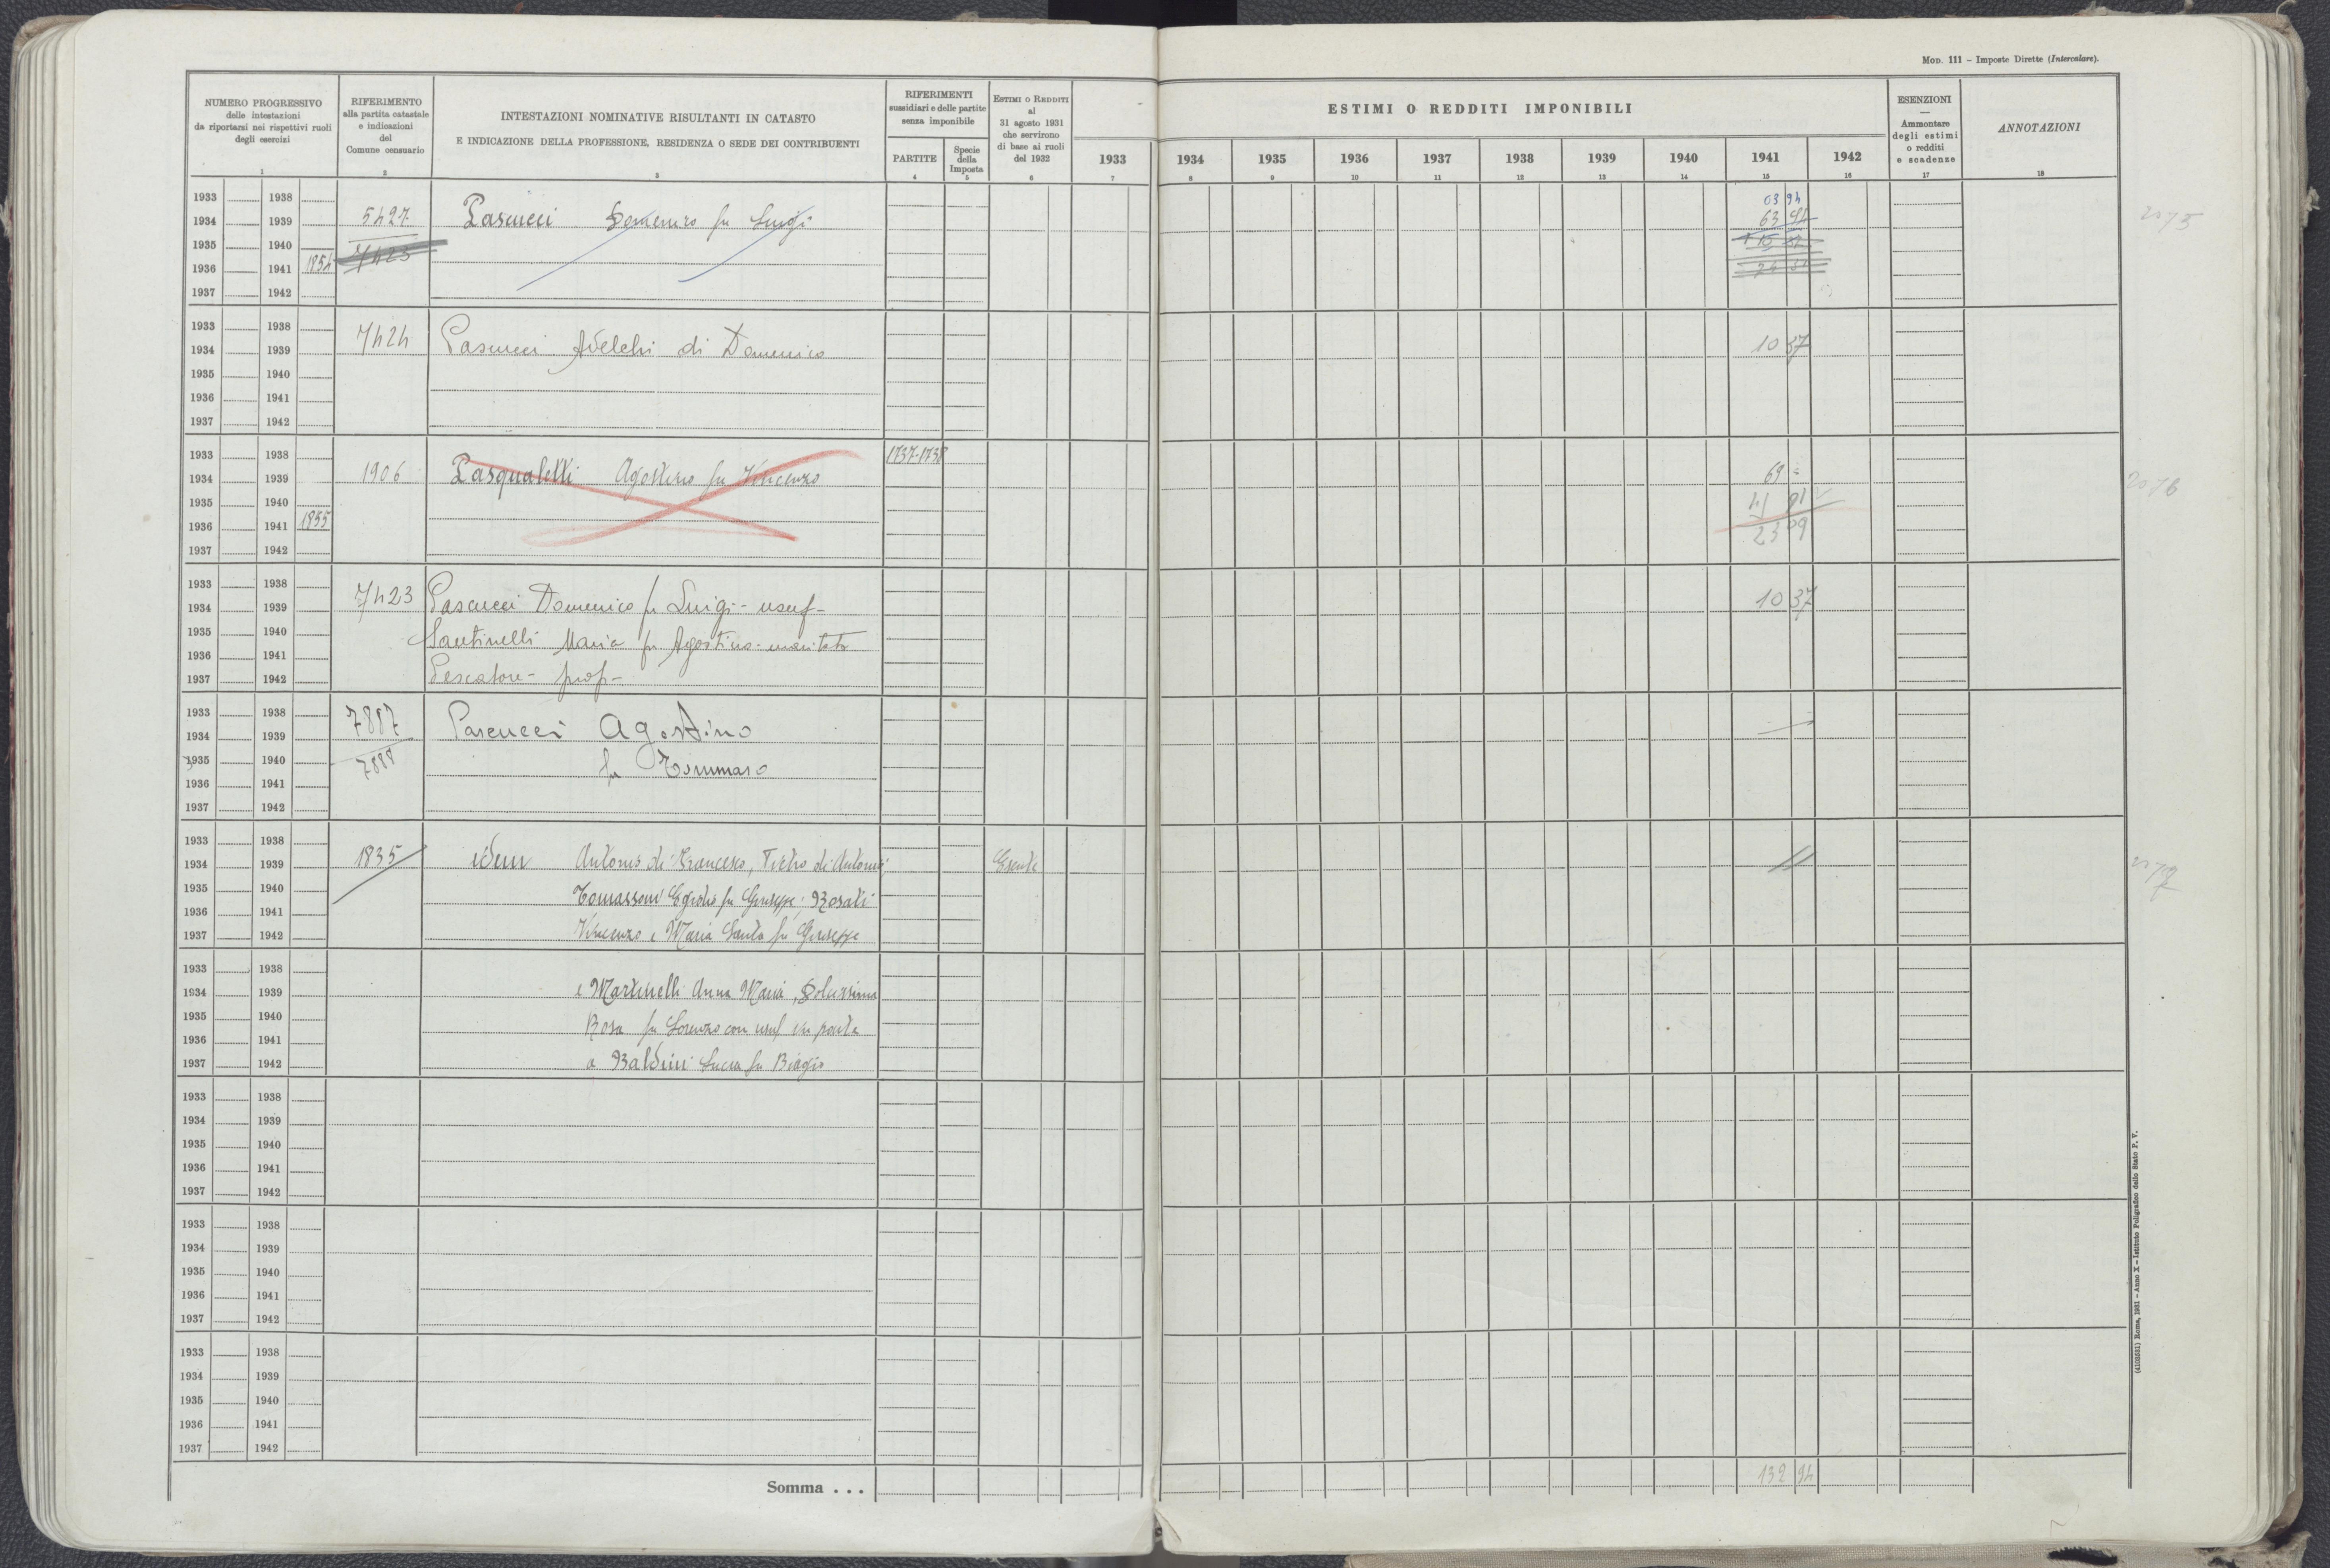 Mod. 111 – Imposte Dirette (Intercalare).
NUMERO PROGRESSIVO
delle intestazioni
da riportarsi nei rispettivi ruoli
degli esercizi
1
RIFERIMENTO
alla partita catastale
e indicazioni
del
Comune censuario
2
INTESTAZIONI NOMINATIVE RISULTANTI IN CATASTO
E INDICAZIONE DELLA PROFESSIONE, RESIDENZA O SEDE DEI CONTRIBUENTI
3
RIFERIMENTI
sussidiari e delle partite
senza imponibile
PARTITE
4
Specie
della
Imposta
5
Estimi o Redditi
al
31 agosto 1931
che servirono
di base ai ruoli
del 1932
6
ESTIMI O REDDITI IMPONIBILI
1933 1934 1935 1936 1937 1938 1939 1940 1941 1942
7 8 9 10 11 12 13 14 15 16
ESENZIONI
—
Ammontare
degli estimi
o redditi
e scadenze
17
ANNOTAZIONI
18
1933 1938
1934 1939 5427 Pascucci Domenico fu Luigi 63 94
1935 1940 7423
1936 1941 1854
1937 1942
2075
1933 1938
1934 1939 7424 Pascucci Adelchi di Domenico 10 37
1935 1940
1936 1941
1937 1942
1933 1938 1737-1738
1934 1939 1906 Pasqualetti Agostino fu Vincenzo 69
1935 1940
1936 1941 1855 23 09
1937 1942
2076
1933 1938
1934 1939 7423 Pascucci Domenico fu Luigi - usuf - 10 37
1935 1940 Santinelli Maria fu Agostino - maritata
1936 1941
1937 1942 Pescatore - prop -
1933 1938
1934 1939 7887 Pascucci Agostino
1935 1940 7888 fu Tommaso
1936 1941
1937 1942
1933 1938
1934 1939 1835 idem Antonio di Francesco, Pietro di Antonio; Esente
1935 1940
1936 1941 Tomassoni Egidio fu Giuseppe; Rosati
1937 1942 Vincenzo e Maria Santa fu Giuseppe
1933 1938
1934 1939 e Martinelli Anna Maria,
1935 1940 Rosa fu Lorenzo con usuf in parte
1936 1941
1937 1942 a Baldini Lucia fu Biagio
1933 1938
1934 1939
1935 1940
1936 1941
1937 1942
1933 1938
1934 1939
1935 1940
1936 1941
1937 1942
1933 1938
1934 1939
1935 1940
1936 1941
1937 1942
Somma . . . 132 94
(4103581) Roma, 1931 – Anno X – Istituto Poligrafico dello Stato P. V.